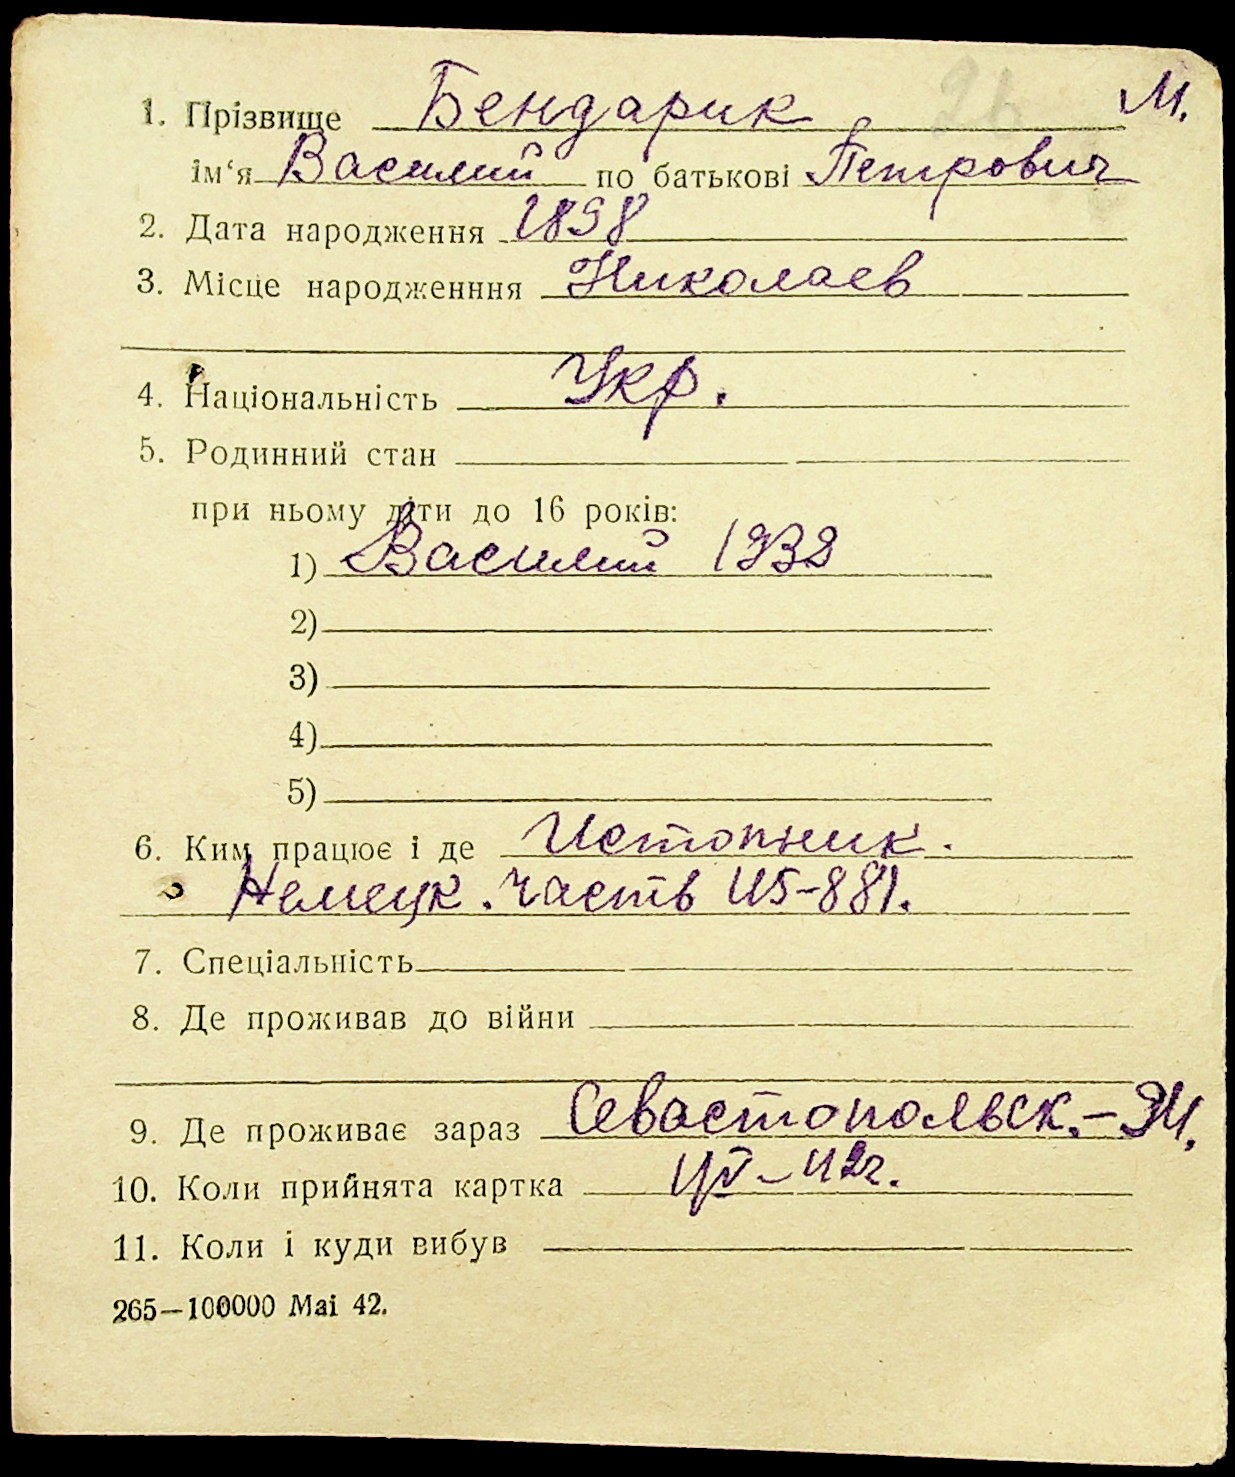 1. Прізвище Бендарик М.
ім‘я Василий по батькові Петрович
2. Дата народження 1898
3. Місце народженння Николаев
4. Національність Укр.
5. Родинний стан
при ньому діти до 16 років:
1) Василий 1932
2)
3)
4)
5)
6. Ким працює і де Истопник.
Немецк. часть 45-881.
7. Спеціальність
8. Де проживав до війни
9. Де проживає зараз Севастопольск.-
10. Коли прийнята картка
11. Коли і куди вибув
265—100000 Mai 42.